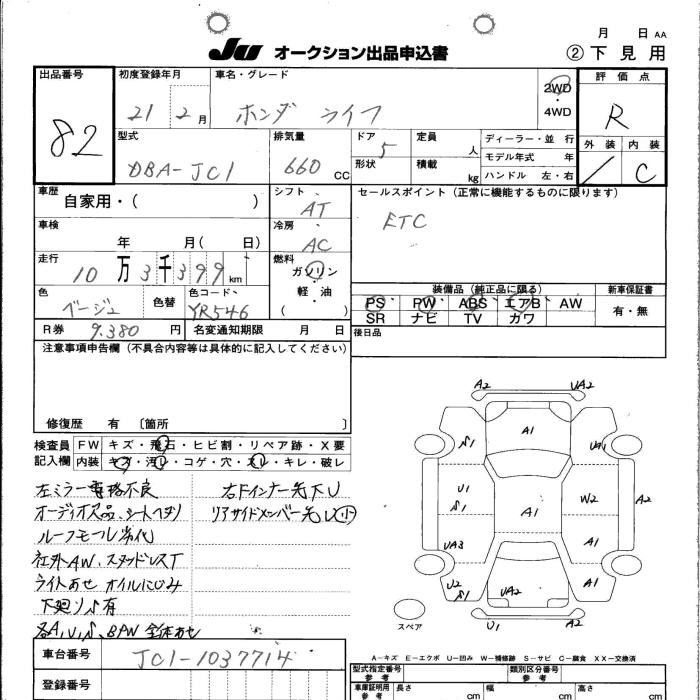 月 日 AA
JU オークション出品申込書 ②下見用
出品番号 初度登録年月 車名・グレード 2WD・4WD 評価点
82 21 2月 ホンダ ライフ R
型式 排気量 ドア 定員 ディーラー・並 行 外装 内装
DBA-JC1 660 CC 5 人 モデル年式 年 / C
形状 積載 kg ハンドル 左・右
車歴 シフト セールスポイント(正常に機能するものに限ります)
自家用・( ) AT ETC
車検 冷房
年 月( 日) AC
走行 燃料
10万3千399km ガソリン
軽・油
( )
装備品(純正品に限る) 新車保証書
PS PW ABS エアB AW 有・無
SR ナビ TV カワ
色 色替 色コード
ベージュ YR546
R券 9.380 円 名変通知期限 月 日 後日品
注意事項申告欄(不具合内容等は具体的に記入してください)
修復歴 有 〔箇所 〕
検査員 FW キズ・飛石・ヒビ割・リペア跡・X要
記入欄 内装 キズ・汚レ・コゲ・穴・スレ・キレ・破レ
左ミラー電格不良 右FインナーサキF凹
オーディオ欠品、シートヘタリ
ルーフモール劣化
社外AW、スタッドレスT
ライトあせ オイルにじみ
下廻りS有
各A,U,S、BPW 全体あせ
車台番号 JC1-1037714
登録番号
A2 UA2
A1
S1 UA1
U1
S1 A1 W2 A2
UA3 A1
U2
S1 UA2 A1
U1 A2
スペア
A-キズ E-エクボ U-凹み W-補修跡 S-サビ C-腐食 XX-交換済
型式指定番号 類別区分番号
車庫証明用参考 長さ cm 参考 幅 cm 高さ cm